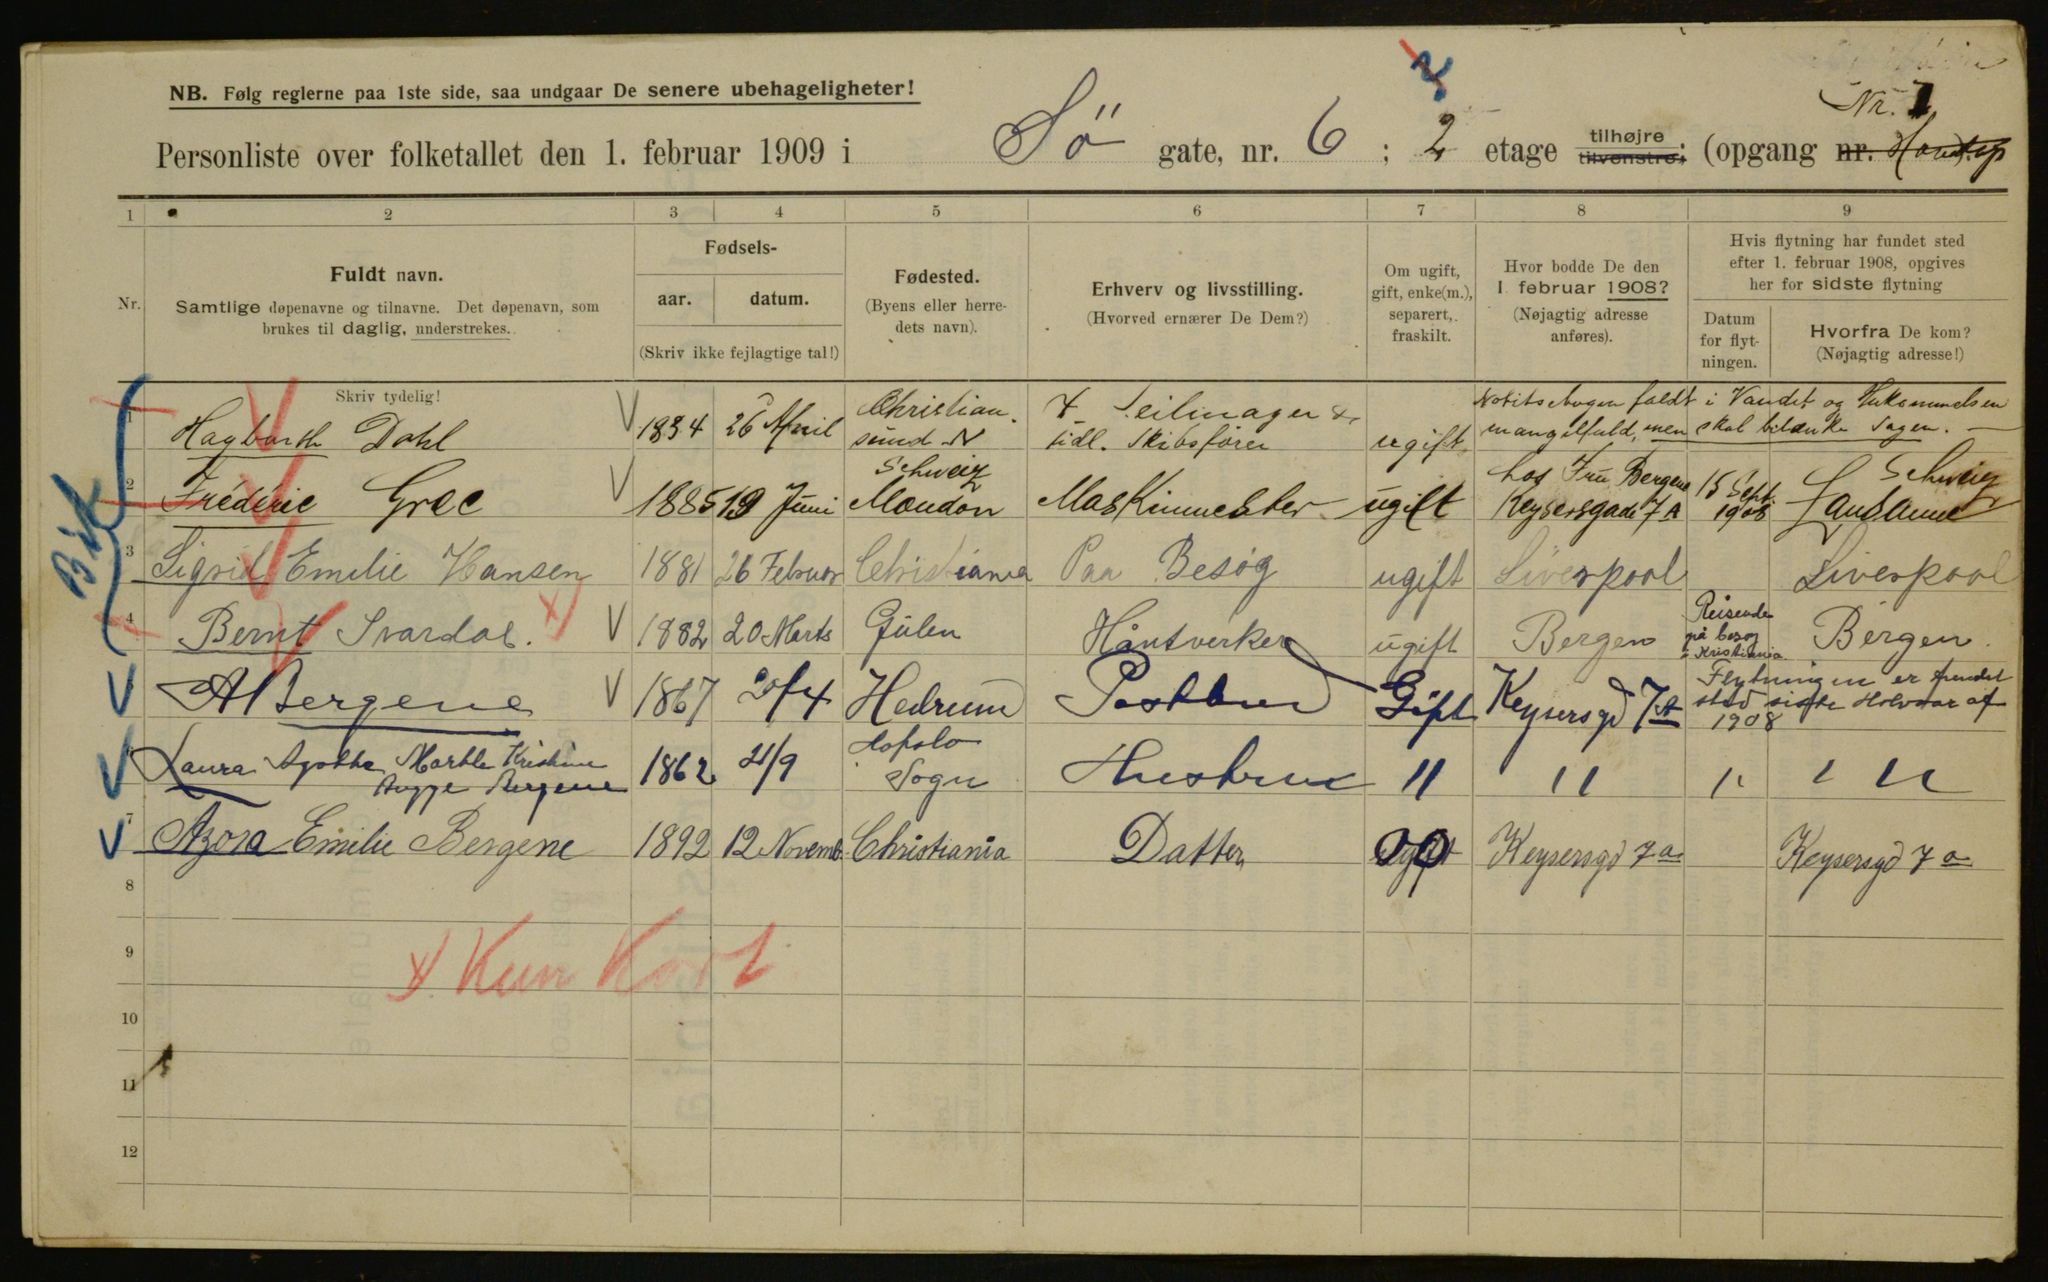 NB. Følg reglerne paa 1ste side, saa undgaar De senere ubehageligheter!
Nr. 1
Personliste over folketallet den 1. februar 1909 i Sö gate, nr. 6 ; 2 etage tilhøjre tilvenstre; (opgang nr.
1 2 3 4 5 6 7 8 9
Nr.
Fuldt navn.
Samtlige døpenavne og tilnavne. Det døpenavn, som
brukes til daglig, understrekes.
Fødsels-
aar. datum.
(Skriv ikke fejlagtige tal!)
Fødested.
(Byens eller herre-
dets navn).
Erhverv og livsstilling.
(Hvorved ernærer De Dem?)
Om ugift,
gift, enke(m.),
separert,
fraskilt.
Hvor bodde De den
1 februar 1908?
(Nøjagtig adresse
anføres).
Hvis flytning har fundet sted
efter 1. februar 1908, opgives
her for sidste flytning
Datum
for flyt-
ningen.
Hvorfra De kom?
(Nøjagtig adresse!)
Skriv tydelig!
1 Hagbarth Dahl 1834 26 April Christian-
sund N Seilmager &
tidl. Skibsfører ugift Notitsebogen faldt i Vandet og Hukommelsen
mangelfuld, men skal betænke Sagen.
2 Fréderic Grec 1885 19 Juni Schweiz
Moudon Maskinmester ugift hos Fru Bergene
Keysersgade 7A 15 Sept.
1908 Schweiz
Lausanne
3 Sigrid Emilie Hansen 1881 26 Februar Christiania Paa Besög ugift Liverpool Liverpool
4 Bernt Svardal. 1882 20 Marts Gulen Håntverker ugift Bergen Reisende
på besog
i Kristiania Bergen.
A Bergene 1867 20/4 Hedrum Postbud Gift Keysersgd 7A Flytningen er fundet
sted siste Holvaar af
1908
Laura Agathe Marthe Kristine
Bergene 1862 21/9 Hafslo
Sogn Hustru 〃 〃 〃 〃
7 Azora Emilie Bergene 1892 12 Novemb. Christiania Datter Ugift Keysersgd 7a Keysersgd 7a
8
9
x) Kun Kort
10
11
12